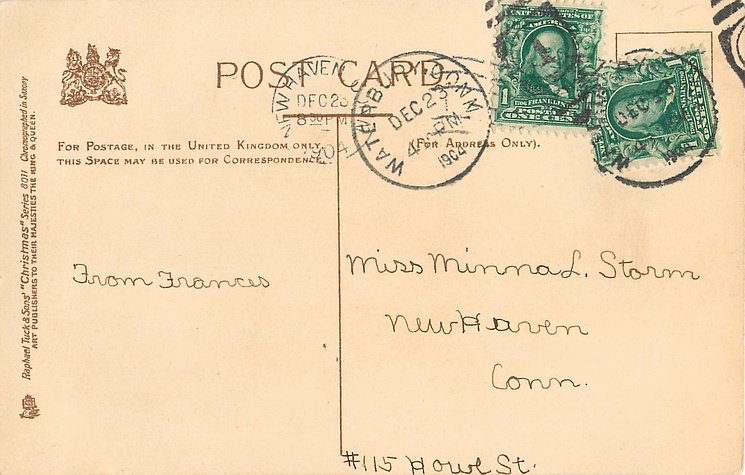 POST CARD
NEW HAVEN
DEC 23
8 30 PM
1904
WATERBURY, CONN.
DEC 23
4 PM
1904
UNITED STATES OF AMERICA
1 FRANKLIN 1
POSTAGE
ONE CENT
1
DEC
For Postage, in the United Kingdom only,
this Space may be used for Correspondence.
(For Address Only).
From Frances
Miss Minna L. Storm
New Haven
Conn.
#115 Howe St.
Raphael Tuck & Sons' "Christmas" Series 8011 Chromographed in Saxony
ART PUBLISHERS TO THEIR MAJESTIES THE KING & QUEEN.